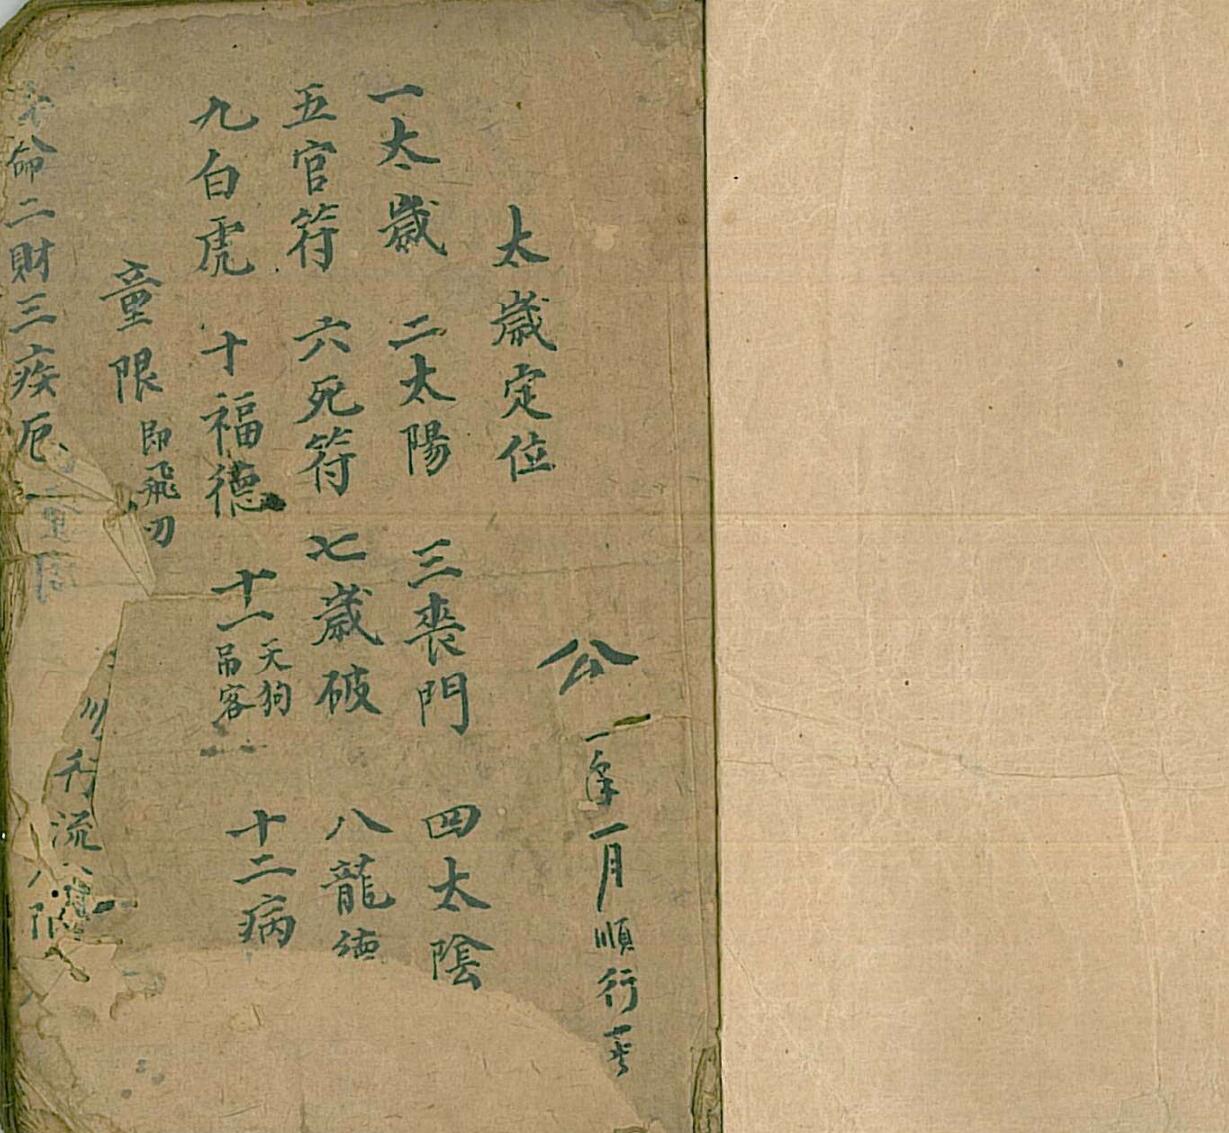 公
一年一月順行
太歲定位
一太歲 二太陽 三喪門 四太陰
五官符 六死符 七歲破 八龍德
九白虎 十福德 十一天狗吊客 十二病
童限即飛刃
命二財三疾厄
行流